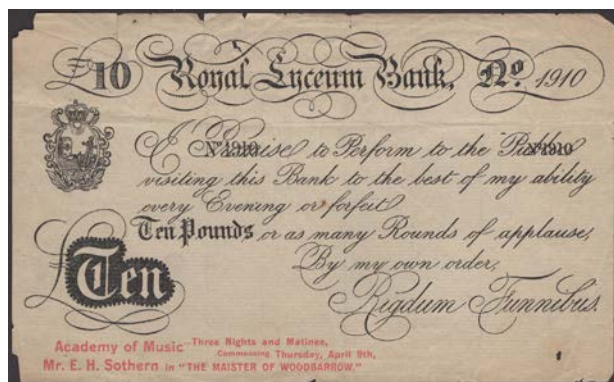 £10 Royal Lyceum Bank, No. 1910
I Promise to Perform to the Public
No 1910 No 1910
visiting this Bank to the best of my ability
every Evening or forfeit
Ten Pounds or as many Rounds of applause,
By my own order,
£Ten
Rigdum Funnibus.
Academy of Music Three Nights and Matinee,
Commencing Thursday, April 9th,
Mr. E. H. Sothern in "THE MAISTER OF WOODBARROW."